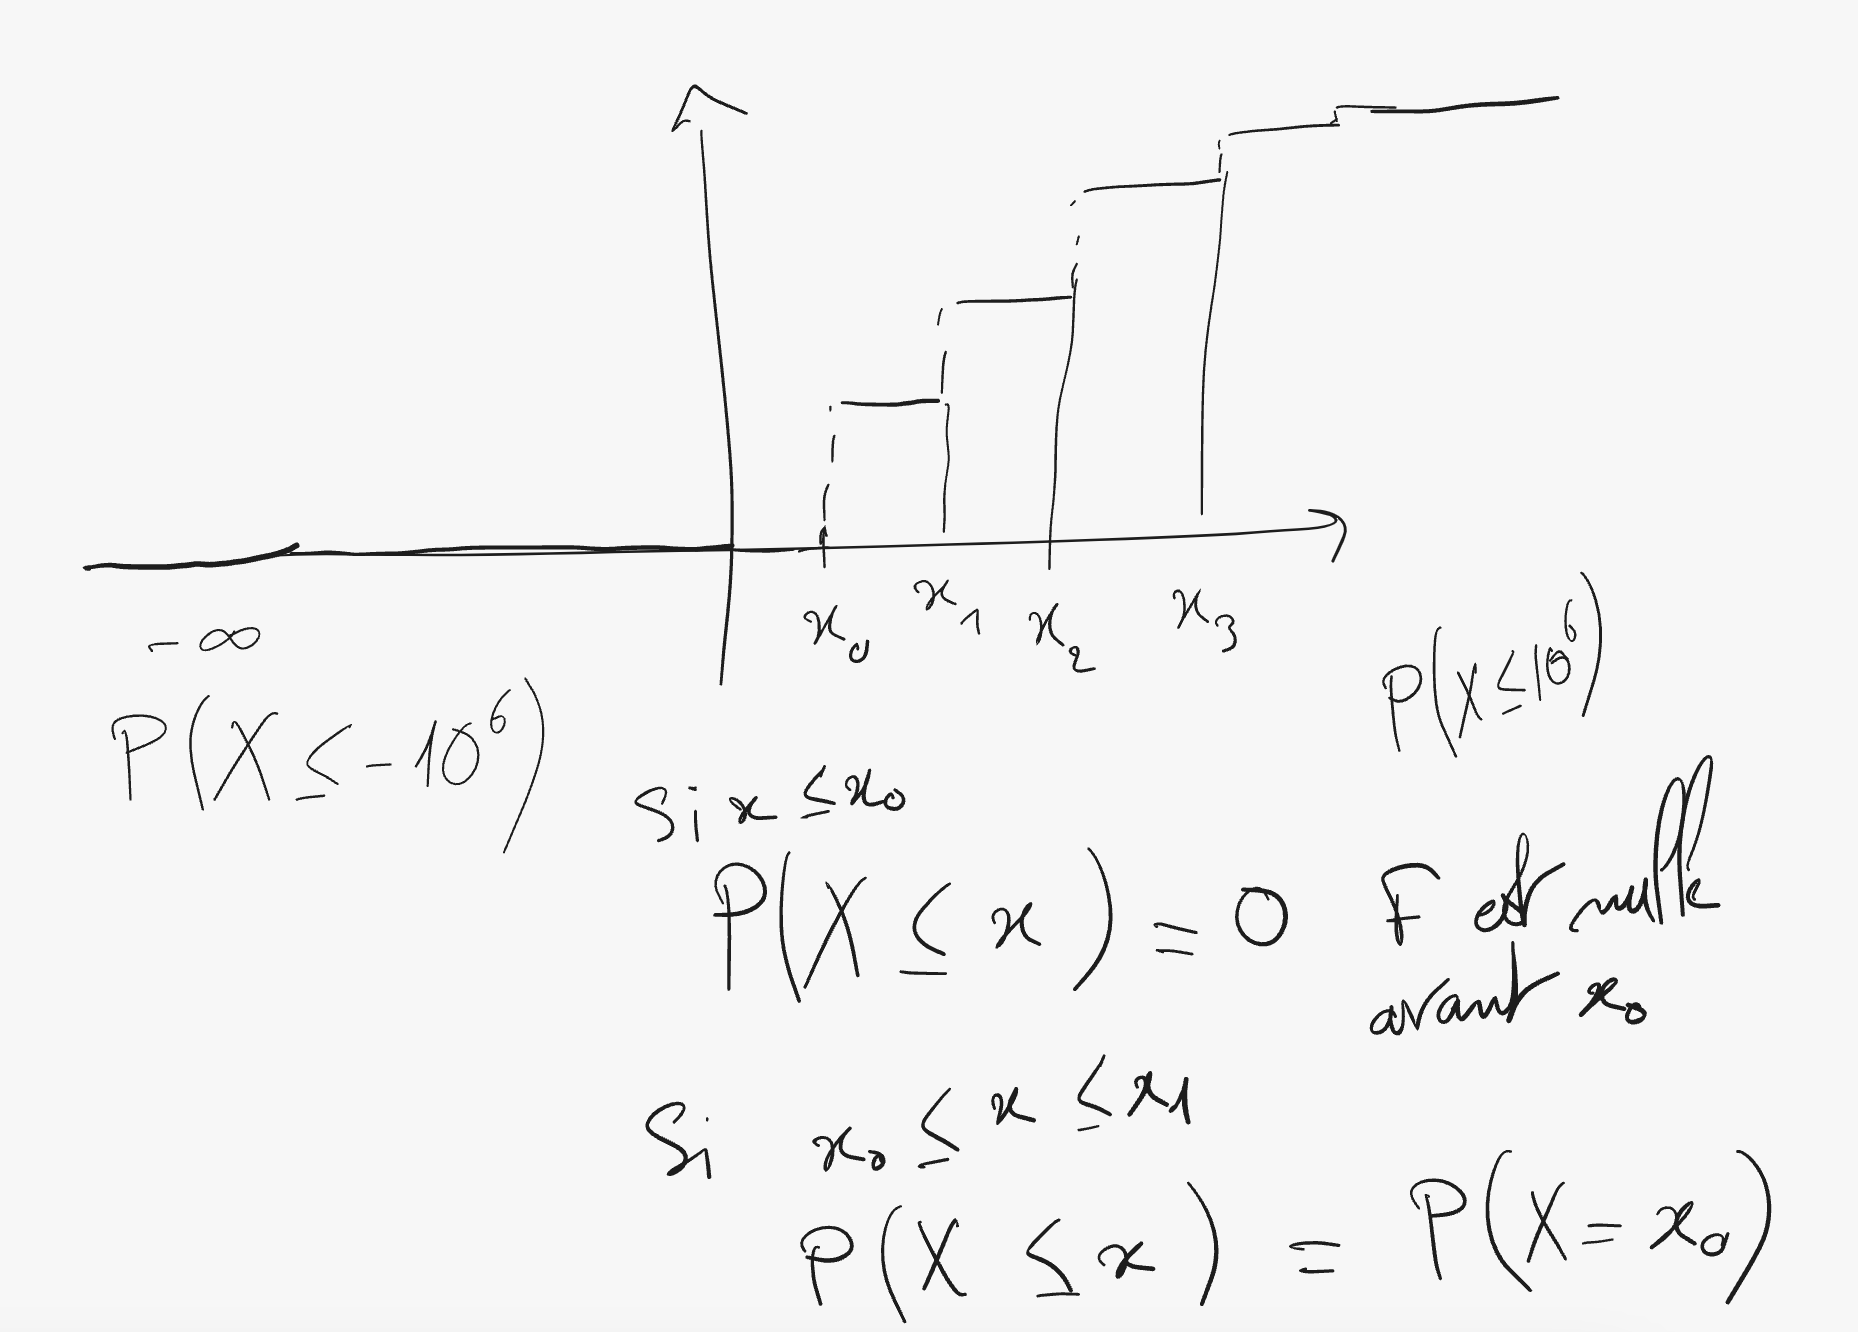 x₀ x₁ x₂ x₃
-∞
P(X ≤ -10⁶)
P(X ≤ 10⁶)
Si x ≤ x₀
P(X ≤ x) = 0 F est nulle
avant x₀
Si x₀ ≤ x ≤ x1
P(X ≤ x) = P(X = x₀)